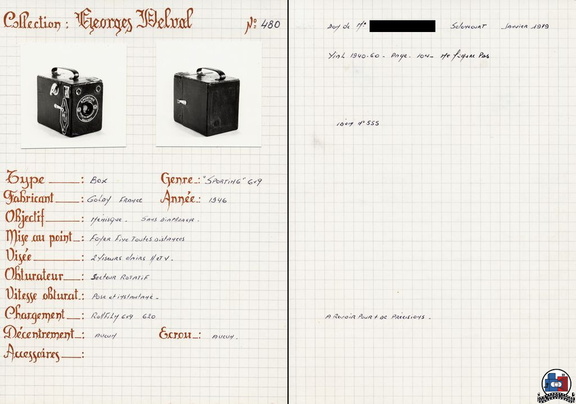 Collection: Georges Delval N° 480
Type : Box Genre : "Sporting" 6x9
Fabricant : Goldy France Année : 1946
Objectif : Ménisque. Sans diaphragme.
Mise au point : Foyer Fixe Toutes distances
Visée : 2 Viseurs clairs H et V.
Obturateur : Secteur Rotatif
Vitesse obturat. : Pose et instantané.
Chargement : Rollfilm 6x9 620
Décentrement : aucun Ecrou : aucun.
Accessoires :
Don de Mr Janvier 1979
Vial 1940-60. Page. 104. Ne figure Pas
idem n° 555
A Revoir Pour + de Précisions.